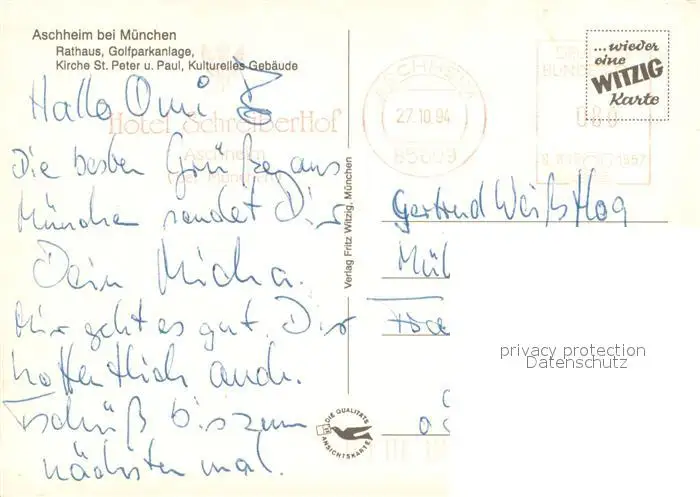 Aschheim bei München
Rathaus, Golfparkanlage,
Kirche St. Peter u. Paul, Kulturelles Gebäude
Hallo Omi
Hotel SchreiberHof
Aschheim
bei München
Die besten Grüße aus
München sendet Dir
Dein Micha.
Mir geht es gut. Dir
hoffentlich auch.
Tschüß bis zum
nächsten mal.
Verlag Fritz Witzig, München
DIE QUALITÄTS
ANSICHTSKARTE
ASCHHEIM
27.10.94
85609
080
1957
...wieder
eine
WITZIG
Karte
Gertrud
Mül
privacy protection
Datenschutz